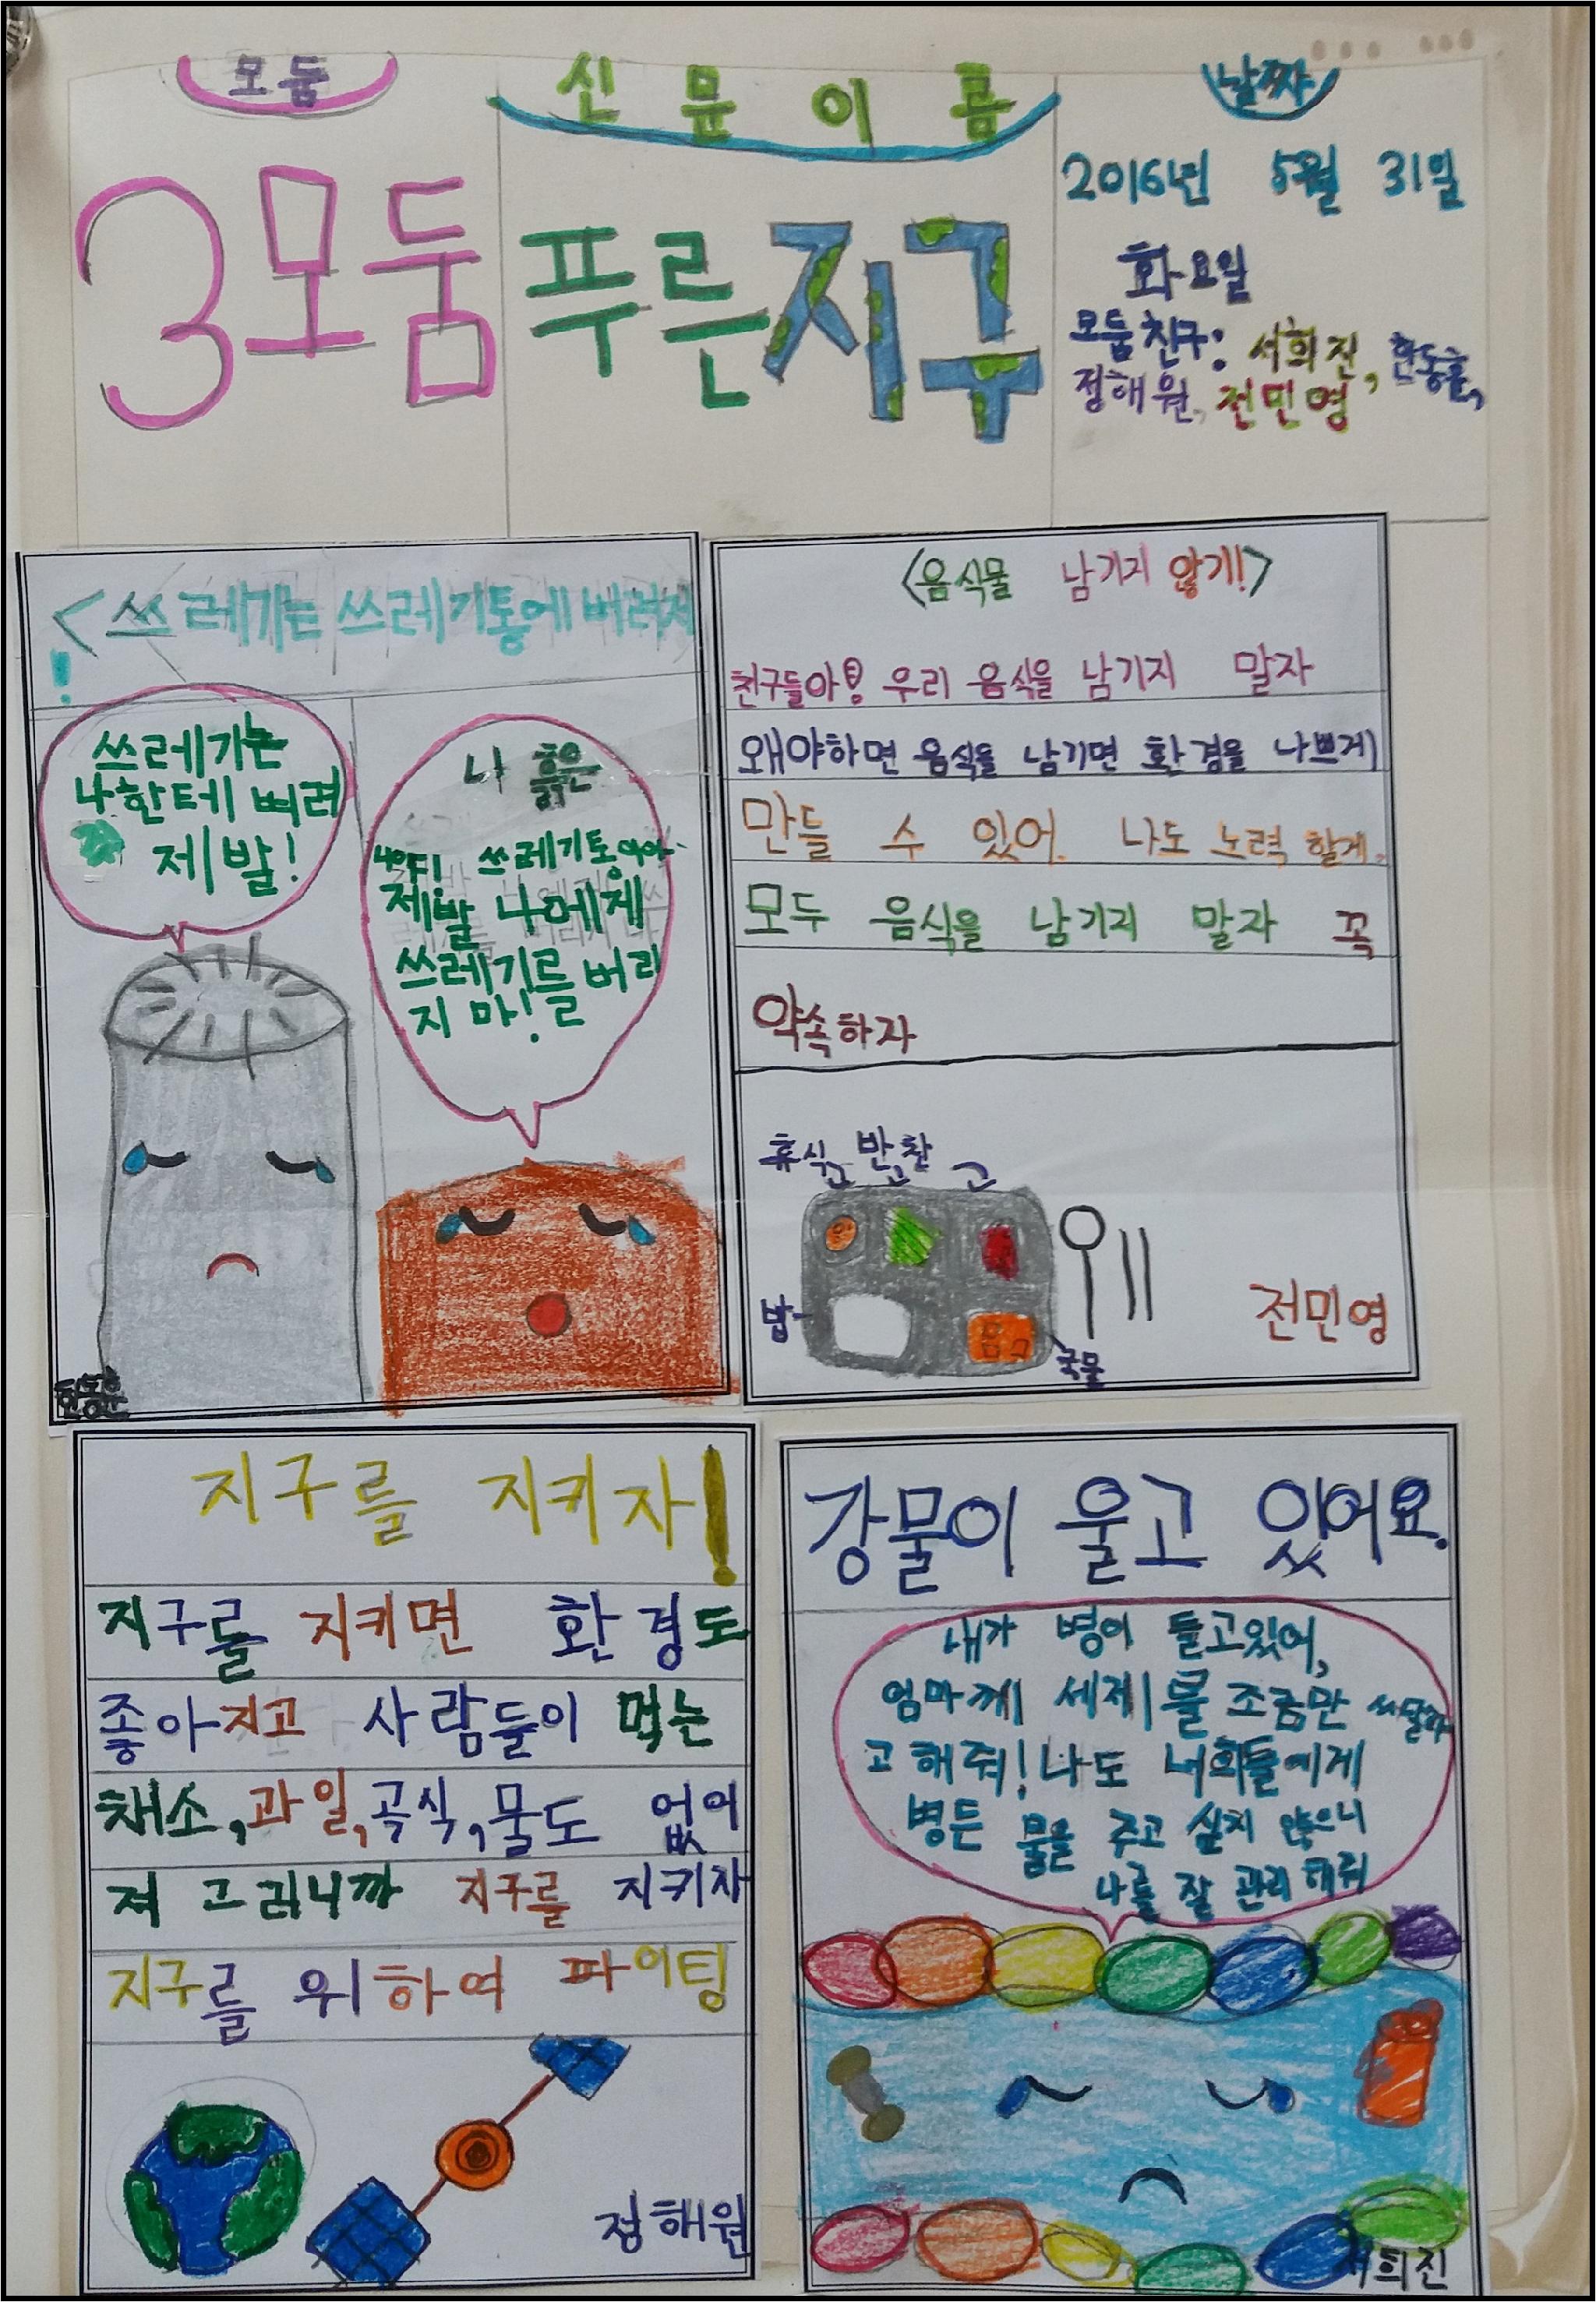 모둠
3모둠
신문이름
푸른지구
날짜
2016년 5월 31일
화요일
모둠친구: 서희진, 한동훈,
정해원, 전민영
<쓰레기는 쓰레기통에 버려자
!
쓰레기는
나한테 뻐려
제발!
나 흙은
나야! 쓰레기통이야.
제발 나에게
쓰레기를 버리
지 마!
한동훈
<음식물 남기지 않기!>
친구들아! 우리 음식을 남기지 말자
왜야하면 음식을 남기면 환경을 나쁘게
만들 수 있어. 나도 노력 할게.
모두 음식을 남기지 말자 꼭
약속하자
휴식 반찬
밥
국물
전민영
지구를 지키자!
지구를 지키면 환경도
좋아지고 사람들이 먹는
채소,과일,곡식,물도 없어
져 그러니까 지구를 지키자
지구를 위하여 파이팅
정해원
강물이 울고 있어요.
내가 병이 들고있어,
엄마께 세제물 조금만 쓰달라
고 해줘! 나도 너희들에게
병든 물을 주고 싶지 않으니
나를 잘 관리 해줘
서희진